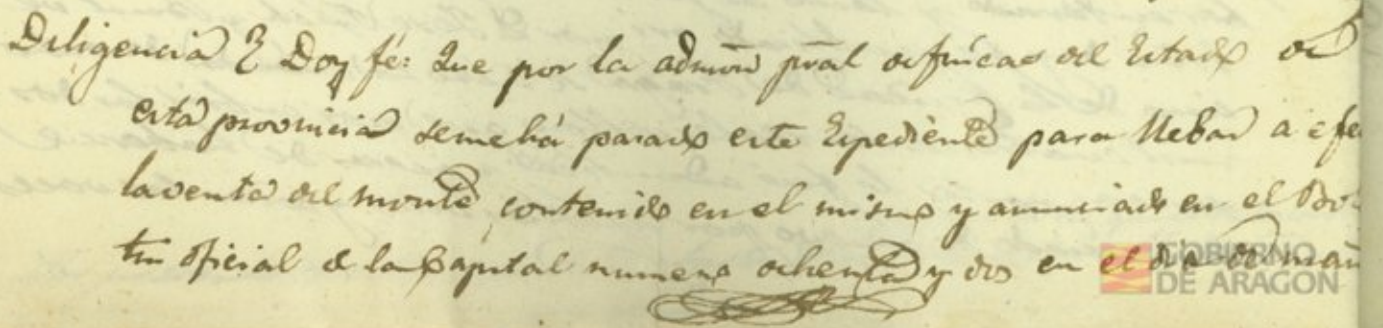 Diligencia } Doy fé: Que por la admon pral de fincas del Estado de
esta provincia se me há pasado este Espediente para llebar a efe
la venta del monte contenido en el mismo y anunciado en el Bo
tin oficial de la Capital numero ochenta y dos en el dia de mañ
GOBIERNO
DE ARAGON